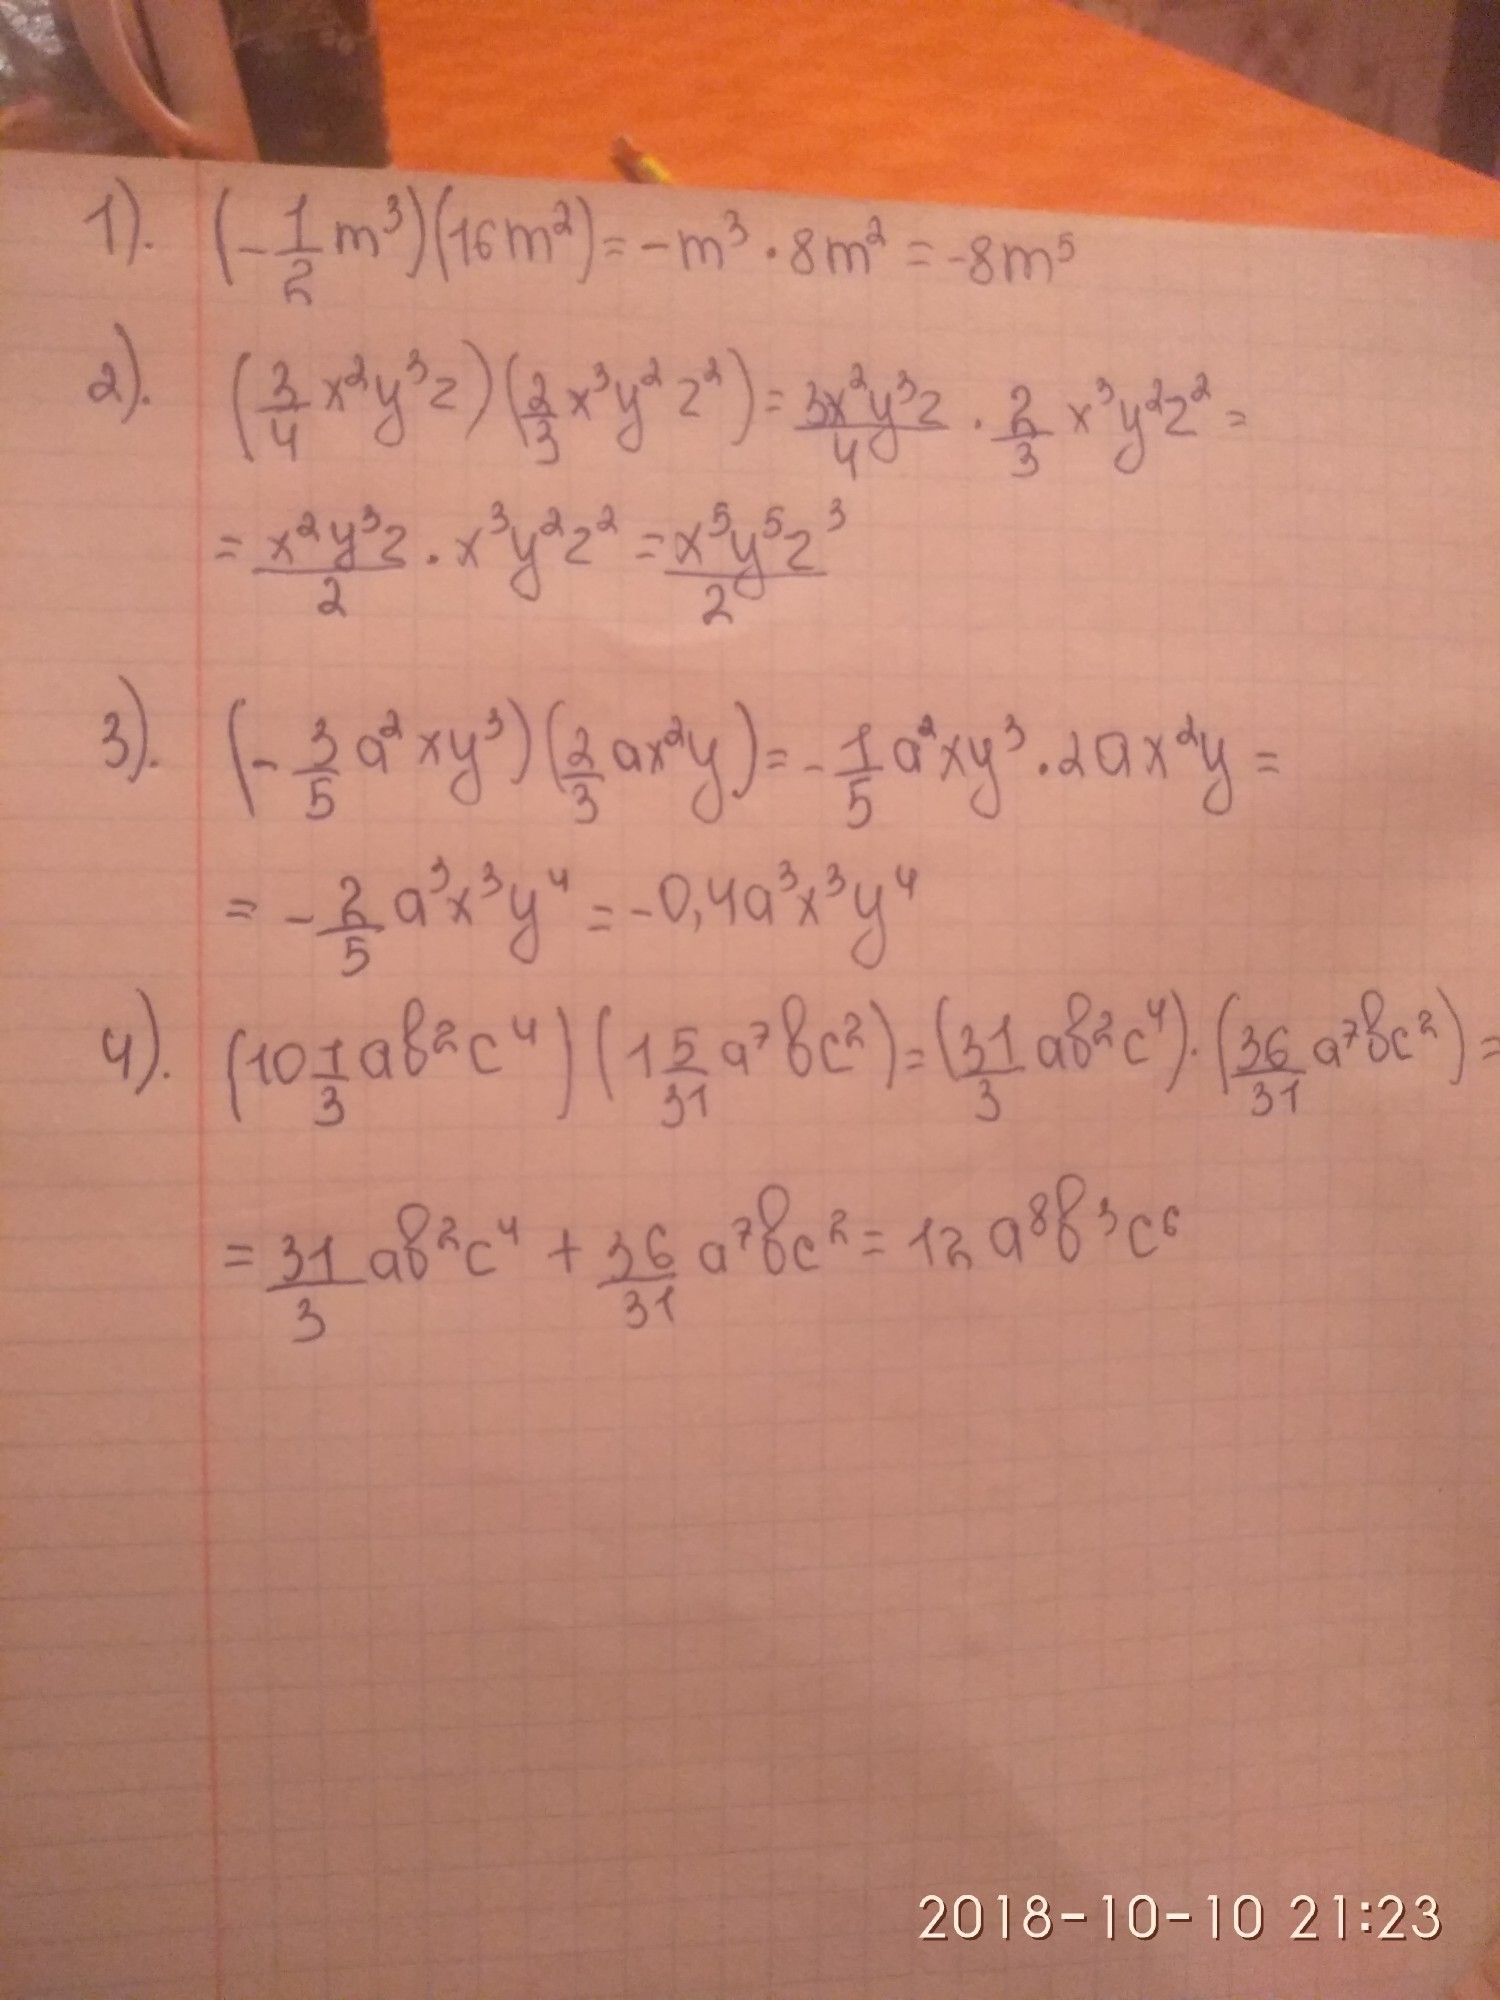 1). (-1/2 m³)(16m²)= -m³ · 8m² = -8m⁵
2). (3/4 x²y³z)(2/3 x³y²z²)= 3x²y³z/4 · 2/3 x³y²z² =
= x²y³z/2 · x³y²z² = x⁵y⁵z³/2
3). (-3/5 a²xy³)(2/3 ax²y)= -1/5 a²xy³ · 2ax²y =
= -2/5 a³x³y⁴ = -0,4a³x³y⁴
4). (10 1/3 ab²c⁴)(1 5/31 a⁷bc²)=(31/3 ab²c⁴)·(36/31 a⁷bc²)=
= 31/3 ab²c⁴ + 36/31 a⁷bc² = 12a⁸b³c⁶
2018-10-10 21:23